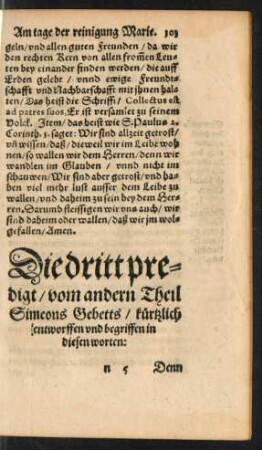 Am tage der reinigung Marie. 103
geln/ vnd allen guten Freunden / da wir
den rechten Kern von allen frommen Leu-
ten bey einander finden werden / die auff
Erden gelebt / vnnd ewige Freundt-
schafft vnd Nachbarschafft mit jhnen hal-
ten/ Das heist die Schrifft / Collectus est
ad patres suos, Er ist versamlet zu seinem
Volck. Item / das heist wie S. Paulus 2.
Corinth. 5. saget: Wir sind allzeit getrost/
vñ wissen/ daß / dieweil wir im Leibe woh
nen/ so wallen wir dem Herren/ denn wir
wandlen im Glauben / vnnd nicht im
schauwen/ Wir sind aber getrost/ vnd ha-
ben viel mehr lust ausser dem Leibe zu
wallen/ vnd daheim zu sein bey dem Her-
ren. Darumb fleissigen wir vns auch / wir
sind daheim oder wallen/ daß wir jm wol-
gefallen/ Amen.
Die dritt pre-
digt / vom andern Theil
Simeons Gebetts / kürtzlich
entworffen vnd begriffen in
diesen worten:
n 5 Denn